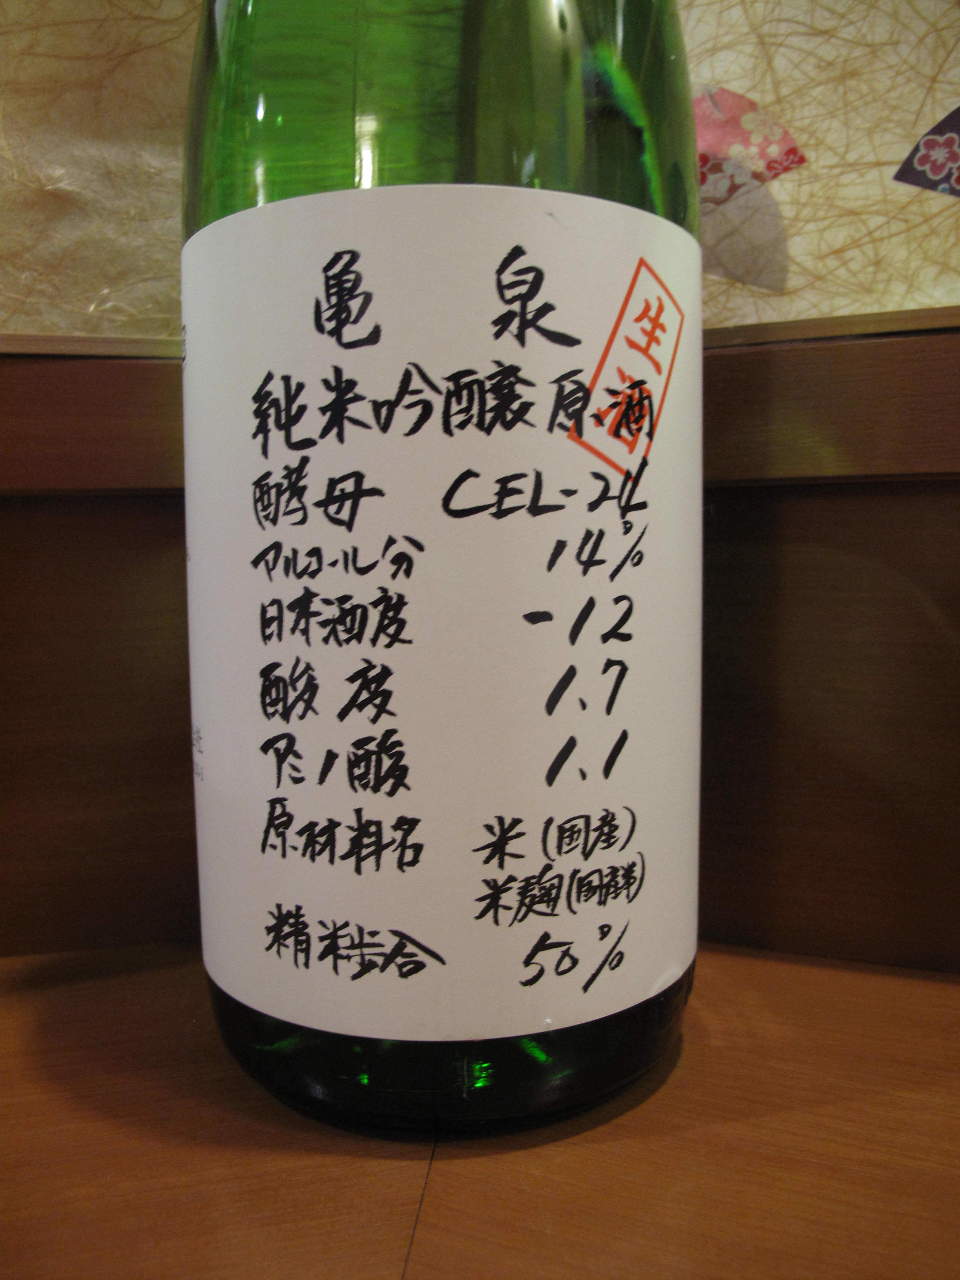 亀 泉
生酒
純米吟醸原酒
酵母 CEL-24
アルコール分 14%
日本酒度 -12
酸度 1.7
アミノ酸 1.1
原材料名 米(国産)
米麹(国産米)
精米歩合 50%